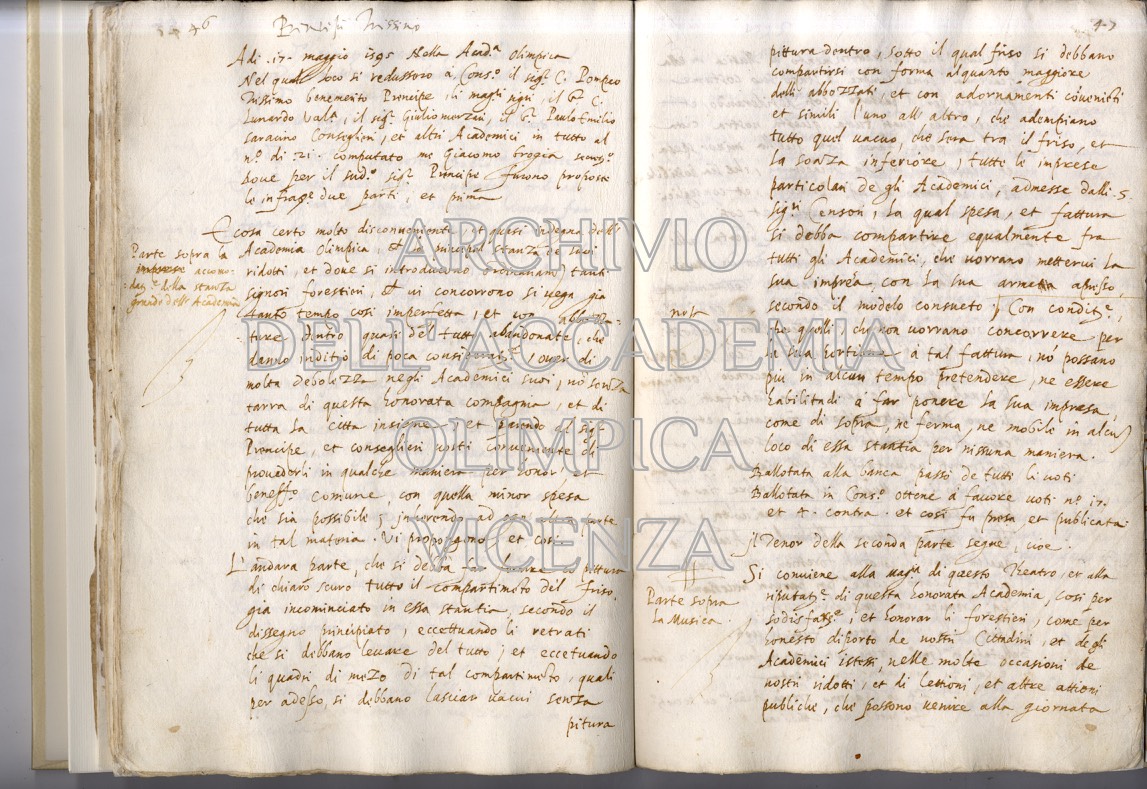 46
Principe Trissino
Adi .17. maggio 1595 Nella Acad.ᵃ Olimpica
Nel qual loco si redussero a Cons.º il sig.ʳ C. Pompeo
Trissino benemerito Principe, li mag.ᶜⁱ sig.ʳⁱ, il C.
Lunardo Valᵃ, il sig.ʳ Giulio, il Paulo Emilio
Saracino Conseglieri, et altri Academici in tutto al
n.º di 21. computato me Giacomo
Dove per il sud.º sig.ʳ Principe furono proposte
le infrᵉ due parti, et prima
È cosa certo molto disconveniente, et quasi indegna dell'
Academia Olimpica, la principal stanza de suoi
ridotti, et dove si introducono ordinariamᵉ tanti
signori forestieri, et vi concorrono si vega già
tanto tempo così imperfetta, et con abbozza-
ture dentro quasi del tutto abandonate, che
danno inditio di poca, over di
molta debolezza negli Academici suoi, nõ senza
tarra di questa honorata compagnia, et di
tutta la Città insieme, et parendo al sig.ʳ
Principe, et conseglieri conveniente di
provederli in qualche maniera per honor, et
benefᵒ comune, con quella minor spesa
che sia possibile, inherendo ad altra parte
in tal materia. Vi propongono et così
L'andarà parte, che si debba far finire di pittura
di chiaro scuro tutto il compartimẽto del friso,
già incominciato in essa stantia, secondo il
dissegno principiato, eccettuando li retrati
che si debbano levare del tutto, et eccetuando
li quadri di mezo di tal compartimẽto, quali
per adesso, si debbano lasciar vacui senza
pitura
Parte sopra la
imprese acomo-
datᵉ della stanza
grande dell'Academia
47
pittura dentro, sotto il qual friso si debbano
compartirsi con forma alquanto maggiore
delli abbozzati, et con adornamenti cõvenieti
et simili l'uno all'altro, che adempiano
tutto quel vacuo, che sera tra il friso, et
la scanza inferiore, tutte le imprese
particolari de gli Academici, admesse dalli 5
sig.ʳⁱ Censori, la qual spesa, et fattura
si debba compartire egualmente fra
tutti gli Academici, che vorrano mettervi la
sua impresa, con la sua arma apresso,
secondo il modelo consueto, Con condit.ᵉ,
che quelli che non vorrano concorrere per
la sua portione a tal fattura, nõ possano
più in alcun tempo pretendere, ne essere
habilitadi a far ponere la sua impresa,
come di sopra, ne ferma, ne mobile in alcũ
loco di essa stantia per nissuna maniera.
Ballotata alla banca passò de tutti li voti
Ballotata in Cons.º ottene a favore voti nº 17.
et 4. contra. et così fu presa et publicata.
Il Tenor della seconda parte segue, cioe.
Parte sopra
La Musica.
Si conviene alla magᵃ di questo Theatro, et alla
riputatᵉ di questa honorata Academia, così per
sodisfatᵉ, et honorar li forestieri, come per
honesto diporto de nostri Cittadini, et de gli
Academici istessi, nelle molte occasioni de
nostri ridotti, et di lettioni, et altre attioni
publiche, che possono venire alla giornata
ARCHIVIO
DELL'ACCADEMIA
OLIMPICA
VICENZA